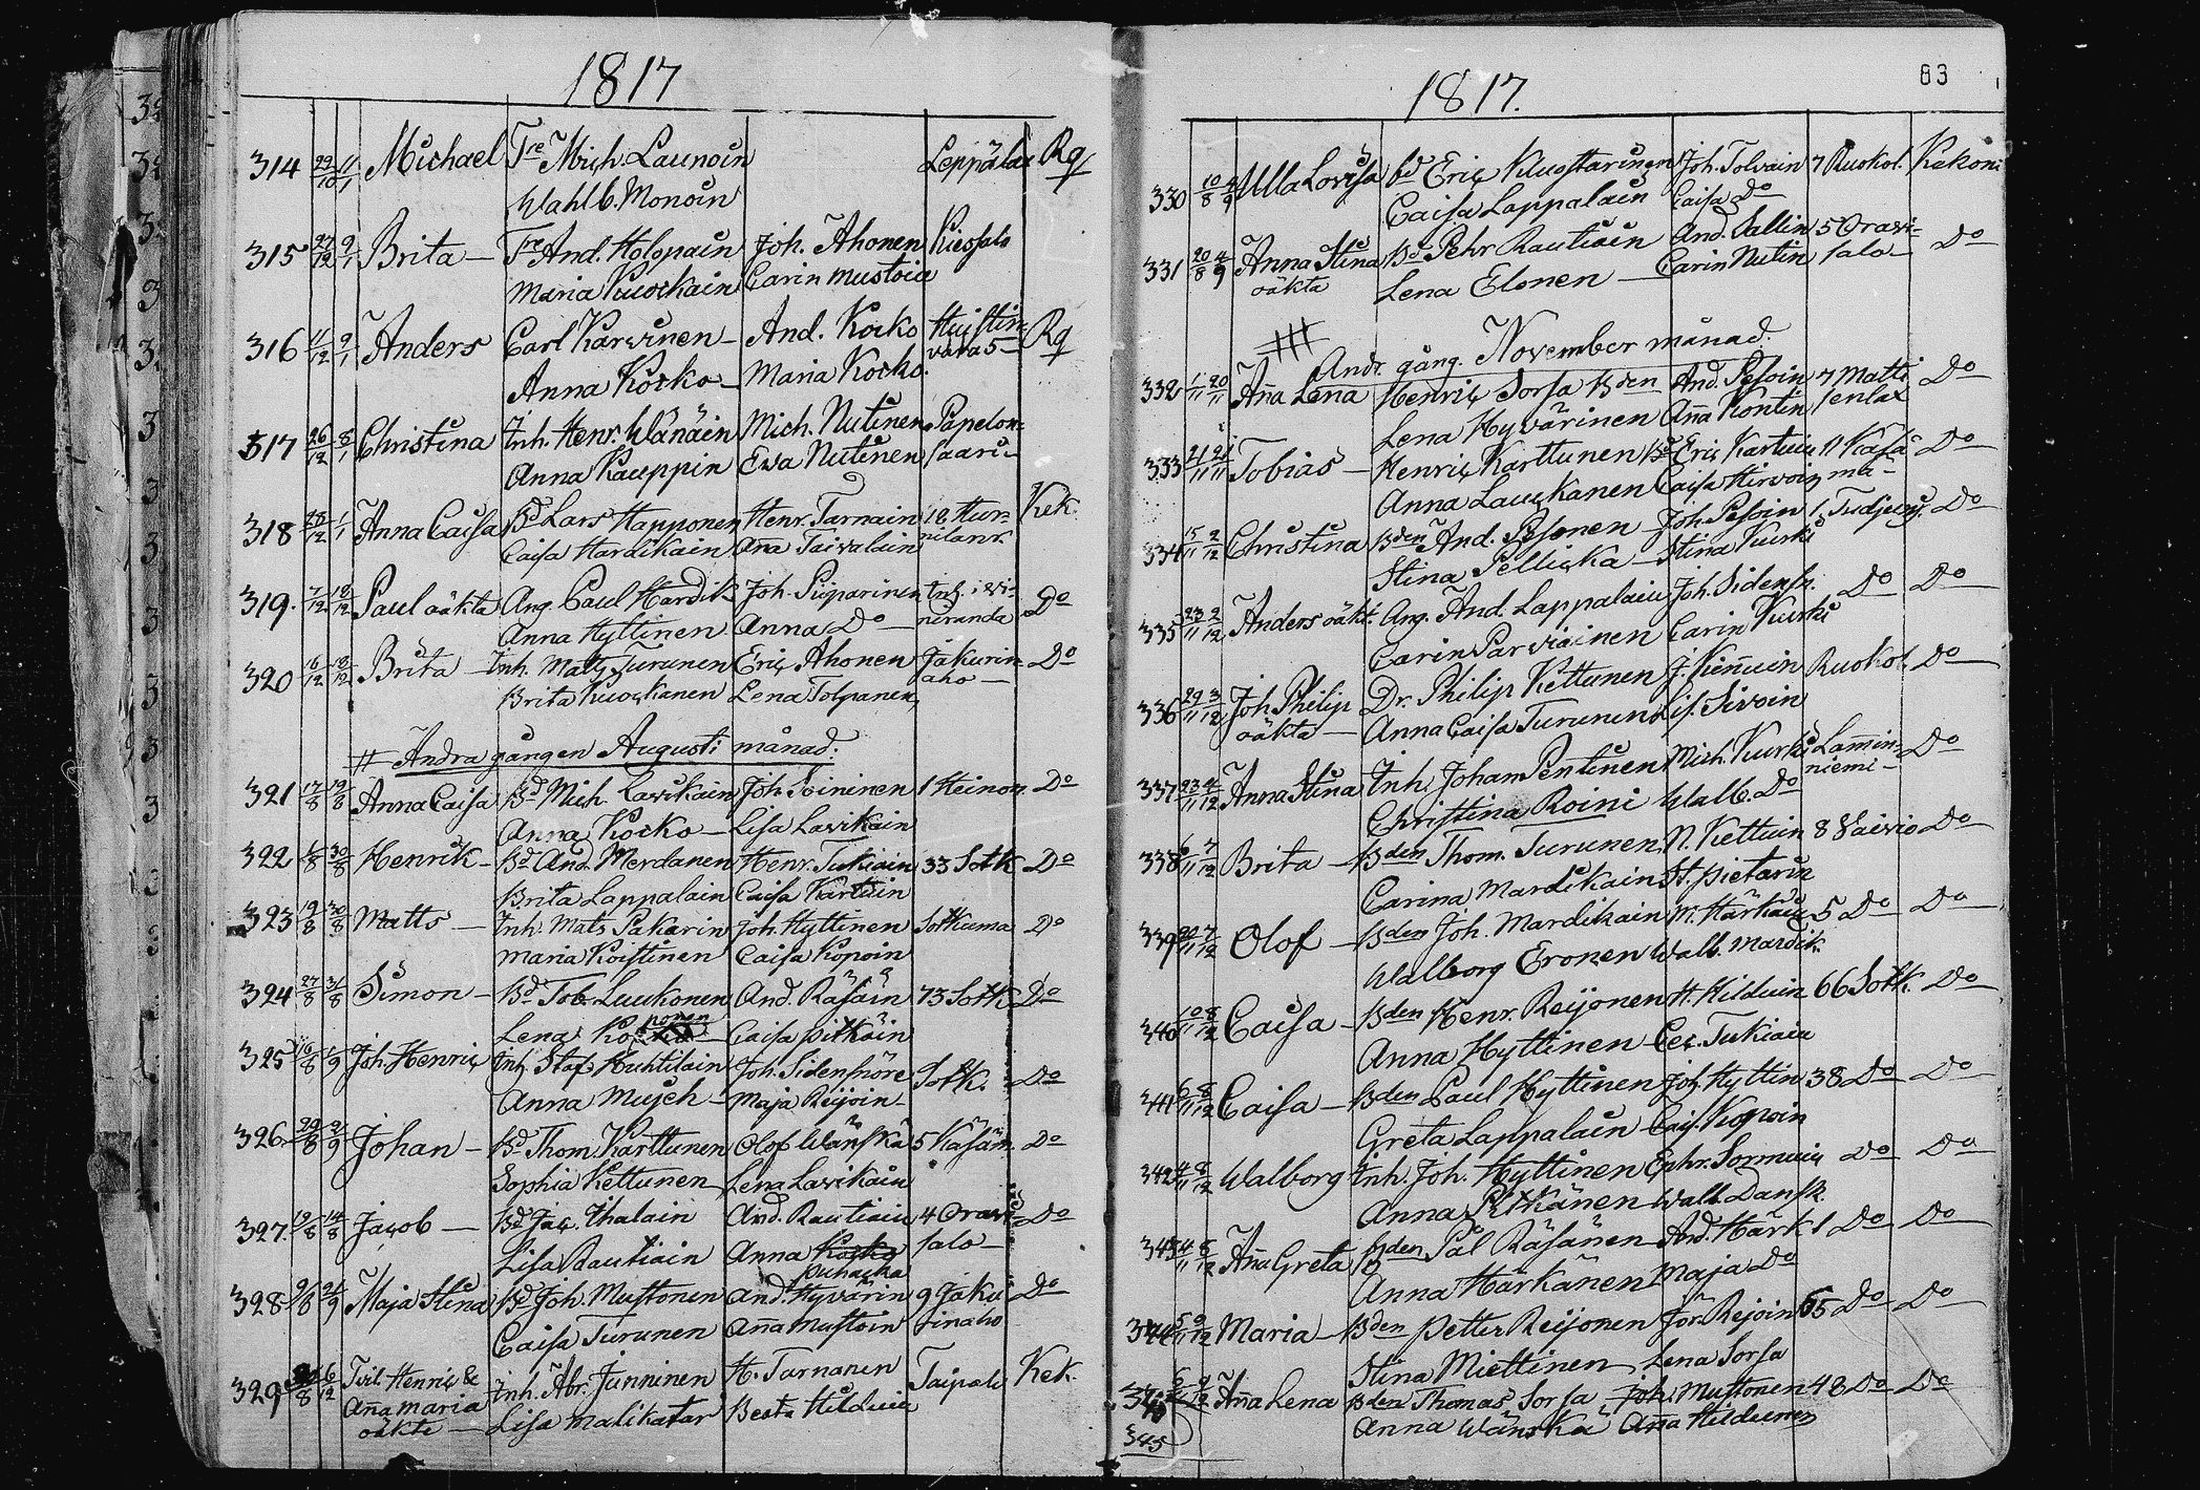 1817
314 22/10 11/1 Michael Tre Mich. Launoin Leppälax Rq
Wahlb. Monoin
315 27/12 9/1 Brita — Tre And. Holopain Joh. Ahonen Kiessalo
Maria Kuockain Carin Mustoin
316 11/12 9/1 Anders Carl Karvinen — And. Kocko Huistin- Rq
vara 5 —
Anna Kocko — Maria Kocko.
317 26/12 8/1 Christina Inh. Henr. Wänäin Mich. Nutinen Papelon-
Anna Kauppin Ewa Nutinen saari
318 28/12 1/1 Anna Caisa Bd Lars Happonen Henr. Tarnain 12 Kek.
Caisa Hardikain Aña Taivalain
319. 7/12 18/12 Paul oäkta Ang. Paul Hardik Joh. Piiparinen Inh. i Wi- Do
Anna Hyttinen Anna Do — niranda
320 16/12 18/12 Brita — Inh. Mats Turunen Eric Ahonen Jakurin- Do
Brita Kuockanen Lena Tolpanen aho —
# Andra gången Augusti månad.
321 17/8 19/8 Anna Caisa Bd Mich. Lavikain Joh. Toininen 1 Heinon. Do
Anna Kocko — Lisa Lavikain
322 1/8 30/8 Henrik — Bd And. Merdanen Henr. Tukiain 33 Sotk Do
Brita Lappalain Caisa Kartuin
323 19/8 30/8 Matts — Inh. Mats Pakarin Joh. Hyttinen Sotkuma Do
Maria Koistinen Caisa Kopoin
324 27/8 31/8 Simon — Bd Tob. Luukonen And. Räsäin 73 Sotk Do
ponen
Lena Kocko — Caisa Pitkäin
325 16/8 1/9 Joh. Henric Inh. Staf. Huhtilain Joh. Sidensnöre Sotk. Do
Anna Musch — Maja Reijoin —
326. 29/8 2/9 Johan — Bd Thom. Karttunen Olof Wänskä 5 Käsäm. Do
Sophia Kettunen Lena Lavikain
327. 19/8 14/8 Jacob — Bd Jac. Ihalain And. Rautiain 4 Oravi- Do
Lisa Rautiain Anna Kocko salo —
Puhacka
328 9/8 21/9 Maja Stina Bd Joh. Mustonen And. Hyvärin 9 Jaku Do
Caisa Turunen Aña Mustoin rinaho
329 8 6/12 Tvil. Henric & Inh. Abr. Junninen H. Tarnanen Taipale Kek.
Aña Maria Lisa Malikatar Beata Hilduin
oäkte —
1817.
83
330 10/8 4/9 Ulla Lovisa bd Eric Kluostarinen Joh. Tolvain 7 Ruokol. Kekoni
Caisa Lappalain Caisa Do
331 20/8 4/9 Anna Stina Bd Pehr Rautiain And. Sallin 5 Oravi- Do
oäkta Lena Elonen — Carin Nutin salo —
Andr. gång. November månad.
332 1/11 20/11 Aña Lena Henric Sorsa Bden And. Pesoin 7 Matti Do
Lena Hyvärinen Aña Kontin senlax
333 21/11 21/11 Tobias — Henric Karttunen Bd Eric Kartuin 11 Kasa Do
Anna Lauckanen Caisa Hirvoin mä —
334 15/11 2/12 Christina Bden And. Pesonen Joh. Pesoin 1. Do
Stina Pellicka — Stina Kurki
335 23/11 2/12 Anders oäkt. Ang. And. Lappalain Joh. Sidensn. Do Do
Carin Parviainen Carin Kurki
336 29/11 3/12 Joh. Philip Dr. Philip Kettunen J. Kiñuin Ruokol. Do
oäkta — Anna Caisa Turunen Lis. Sivoin
337 23/11 4/12 Anna Stina Inh. Johan Pentinen Mich. Kurki Lamin- Do
Christina Roini Walb. Do niemi —
338 6/11 7/12 Brita — Bden Thom. Turunen N. Kettuin 8 Vaivio Do
Carina Mardikain St. Pietarin
339 20/11 7/12 Olof — Bden Joh. Mardikain M. Härkäin 5 Do Do
Walborg Eronen Walb. Mardik.
340 10/11 8/12 Caisa — Bden Henr. Reijonen H. Hilduin 66 Sotk. Do
Anna Hyttinen — Cec. Tukiain
341 6/11 8/12 Caisa — Bden Paul Hyttinen Joh. Hyttin 38 Do Do
Greta Lappalain — Cais. Kopoin
342 4/11 8/12 Walborg Inh. Joh. Hyttinen Ephr. Sormuin Do Do
Anna Pitkänen Walb. Dansk.
343 4/11 8/12 Aña Greta Bden Pål Räsänen And. Härk 1 Do Do
Anna Härkänen Maja Do
344 5/11 9/12 Maria — Bden Petter Reijonen Jör. Reijoin 65 Do Do
Stina Miettinen Lena Sorsa
345 6/11 9/12 Aña Lena Bden Thomas Sorsa Joh. Mustonen 48 Do Do
Anna Wänskä Aña Hildunen
345